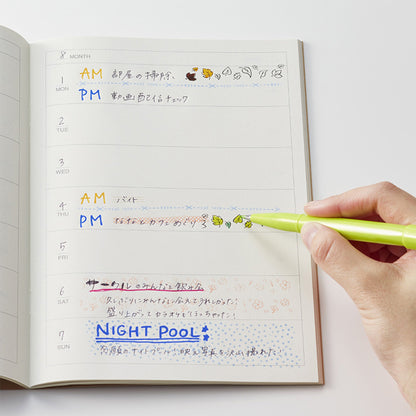 8 MONTH
1 AM 部屋の掃除
MON PM 動画配信チェック
2
TUE
3
WED
4 AM バイト
THU PM ななとカフェめぐり
5
FRI
6 サークルのみんなと飲み会
SAT 久しぶりにみんなに会えてうれしかった!
盛り上がってカラオケも行っちゃった!
7 NIGHT POOL
SUN 念願のナイトプール!映え写真を沢山撮れた!